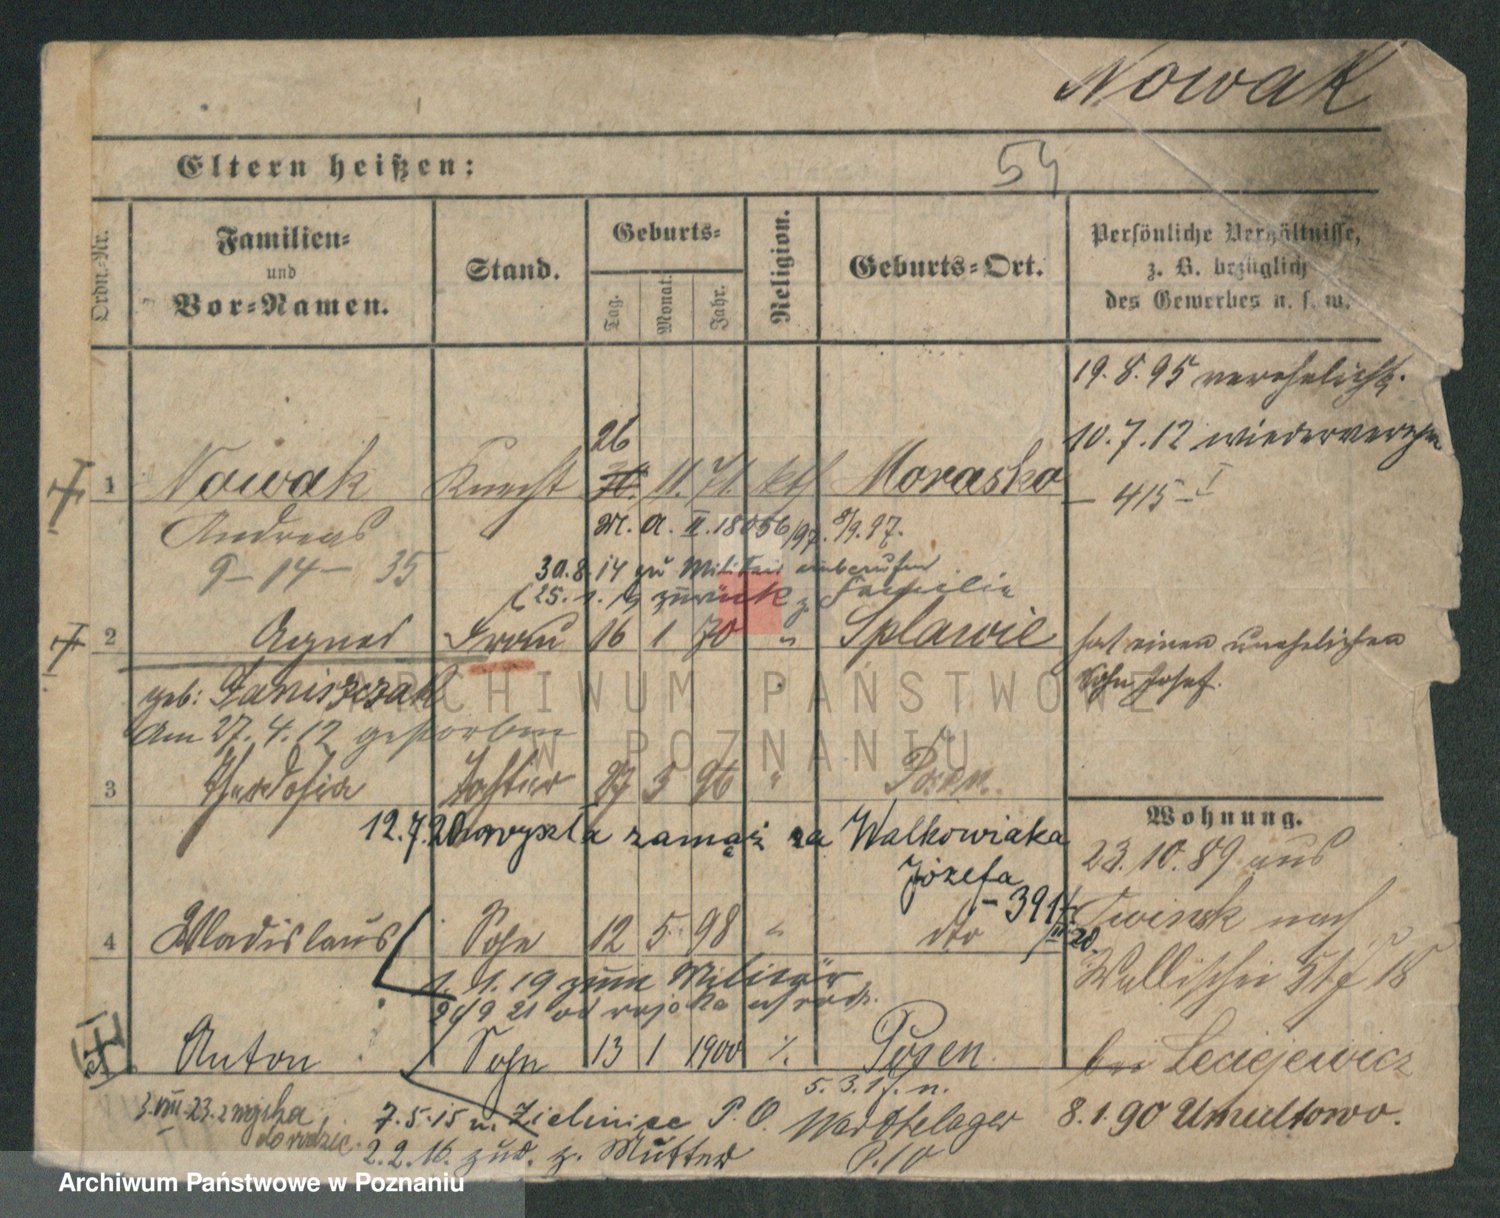 Nowak
Eltern heißen:
54
Ordn.-Nr.
Familien-
und
Vor-Namen.
Stand.
Geburts-
Tag.
Monat.
Jahr.
Religion.
Geburts-Ort.
Persönliche Verhältnisse,
z. B. bezüglich
des Gewerbes u. s. w.
19. 8. 95 verehelicht.
10. 7. 12 wiederverehe
- 415 - I
26
1 Nowak Knecht 11. 71. kth Morasko
Andreas
9 - 14 - 35
M. A. II. 18056/97. 8/9. 97.
30. 8. 14 zu Militär einberufen
25. 1. 19 zurück z. Familie
2 Agnes Frau 16 1 70 " Splawie
hat einen unehelichen
Sohn Josef.
geb: Janiszczak
Am 27. 4. 12 gestorben
3 Theodosia Tochter 27 5 96 " Posen.
12. 7. 20 wyszła zamąż za Walkowiaka
Józefa
- 391
Wohnung.
23. 10. 89 aus
nach
Wallischei 5
4 Wladislaus Sohn 12 5 98 " dto
1. 1. 19 zum Militär
21 od wojska
5 Anton Sohn 13 1 1900 %. Posen.
bei Leciejewicz
5. 3. 17. n.
3. VIII. 23. z wojska
do rodzic.
7. 5. 15 n. Zielinice P. O. Warthelager
8. 1. 90 Umultowo.
2. 2. 16. zur. z. Mutter P. 10
ARCHIWUM PAŃSTWOWE
W POZNANIU
Archiwum Państwowe w Poznaniu